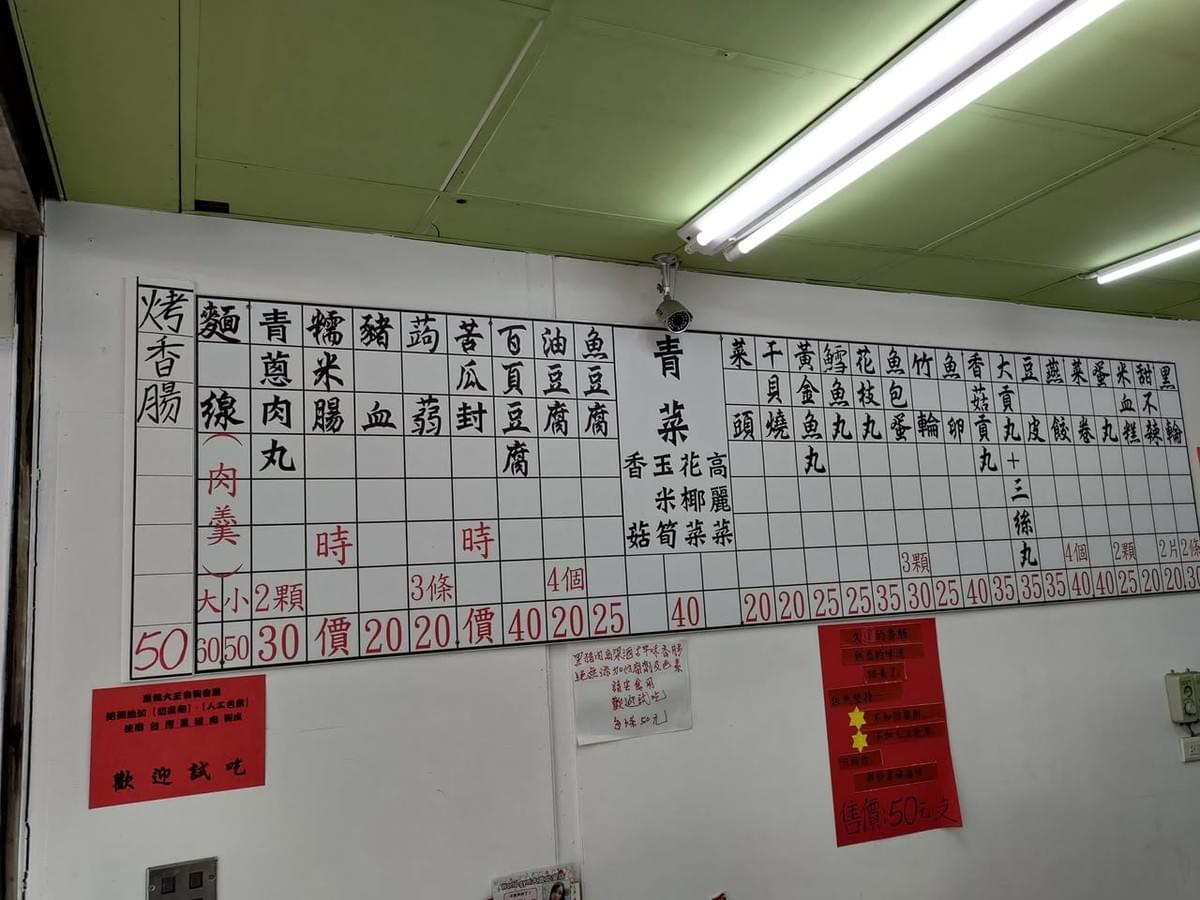 黑輪 2條 30
甜不辣 2片 20
米血糕 20
蛋丸 2顆 25
菜卷 40
燕餃 4個 40
豆皮 35
大貢丸+三絲丸 35
香菇貢丸 35
魚卵 40
竹輪 25
魚包蛋 3顆 30
花枝丸 35
鱈魚丸 25
黃金魚丸 25
干貝燒 20
菜頭 20
青菜
高麗菜
花椰菜
玉米筍
香菇
40
魚豆腐 25
油豆腐 4個 20
百頁豆腐 40
苦瓜封 時價
蒟蒻 3條 20
豬血 20
糯米腸 時價
青蔥肉丸 2顆 30
麵線(肉羹) 大 60 小 50
烤香腸 50
歡迎試吃
請安心食用
歡迎試吃
每條50元
久違的香腸
熟悉的味道
回來了
售價:50元/支